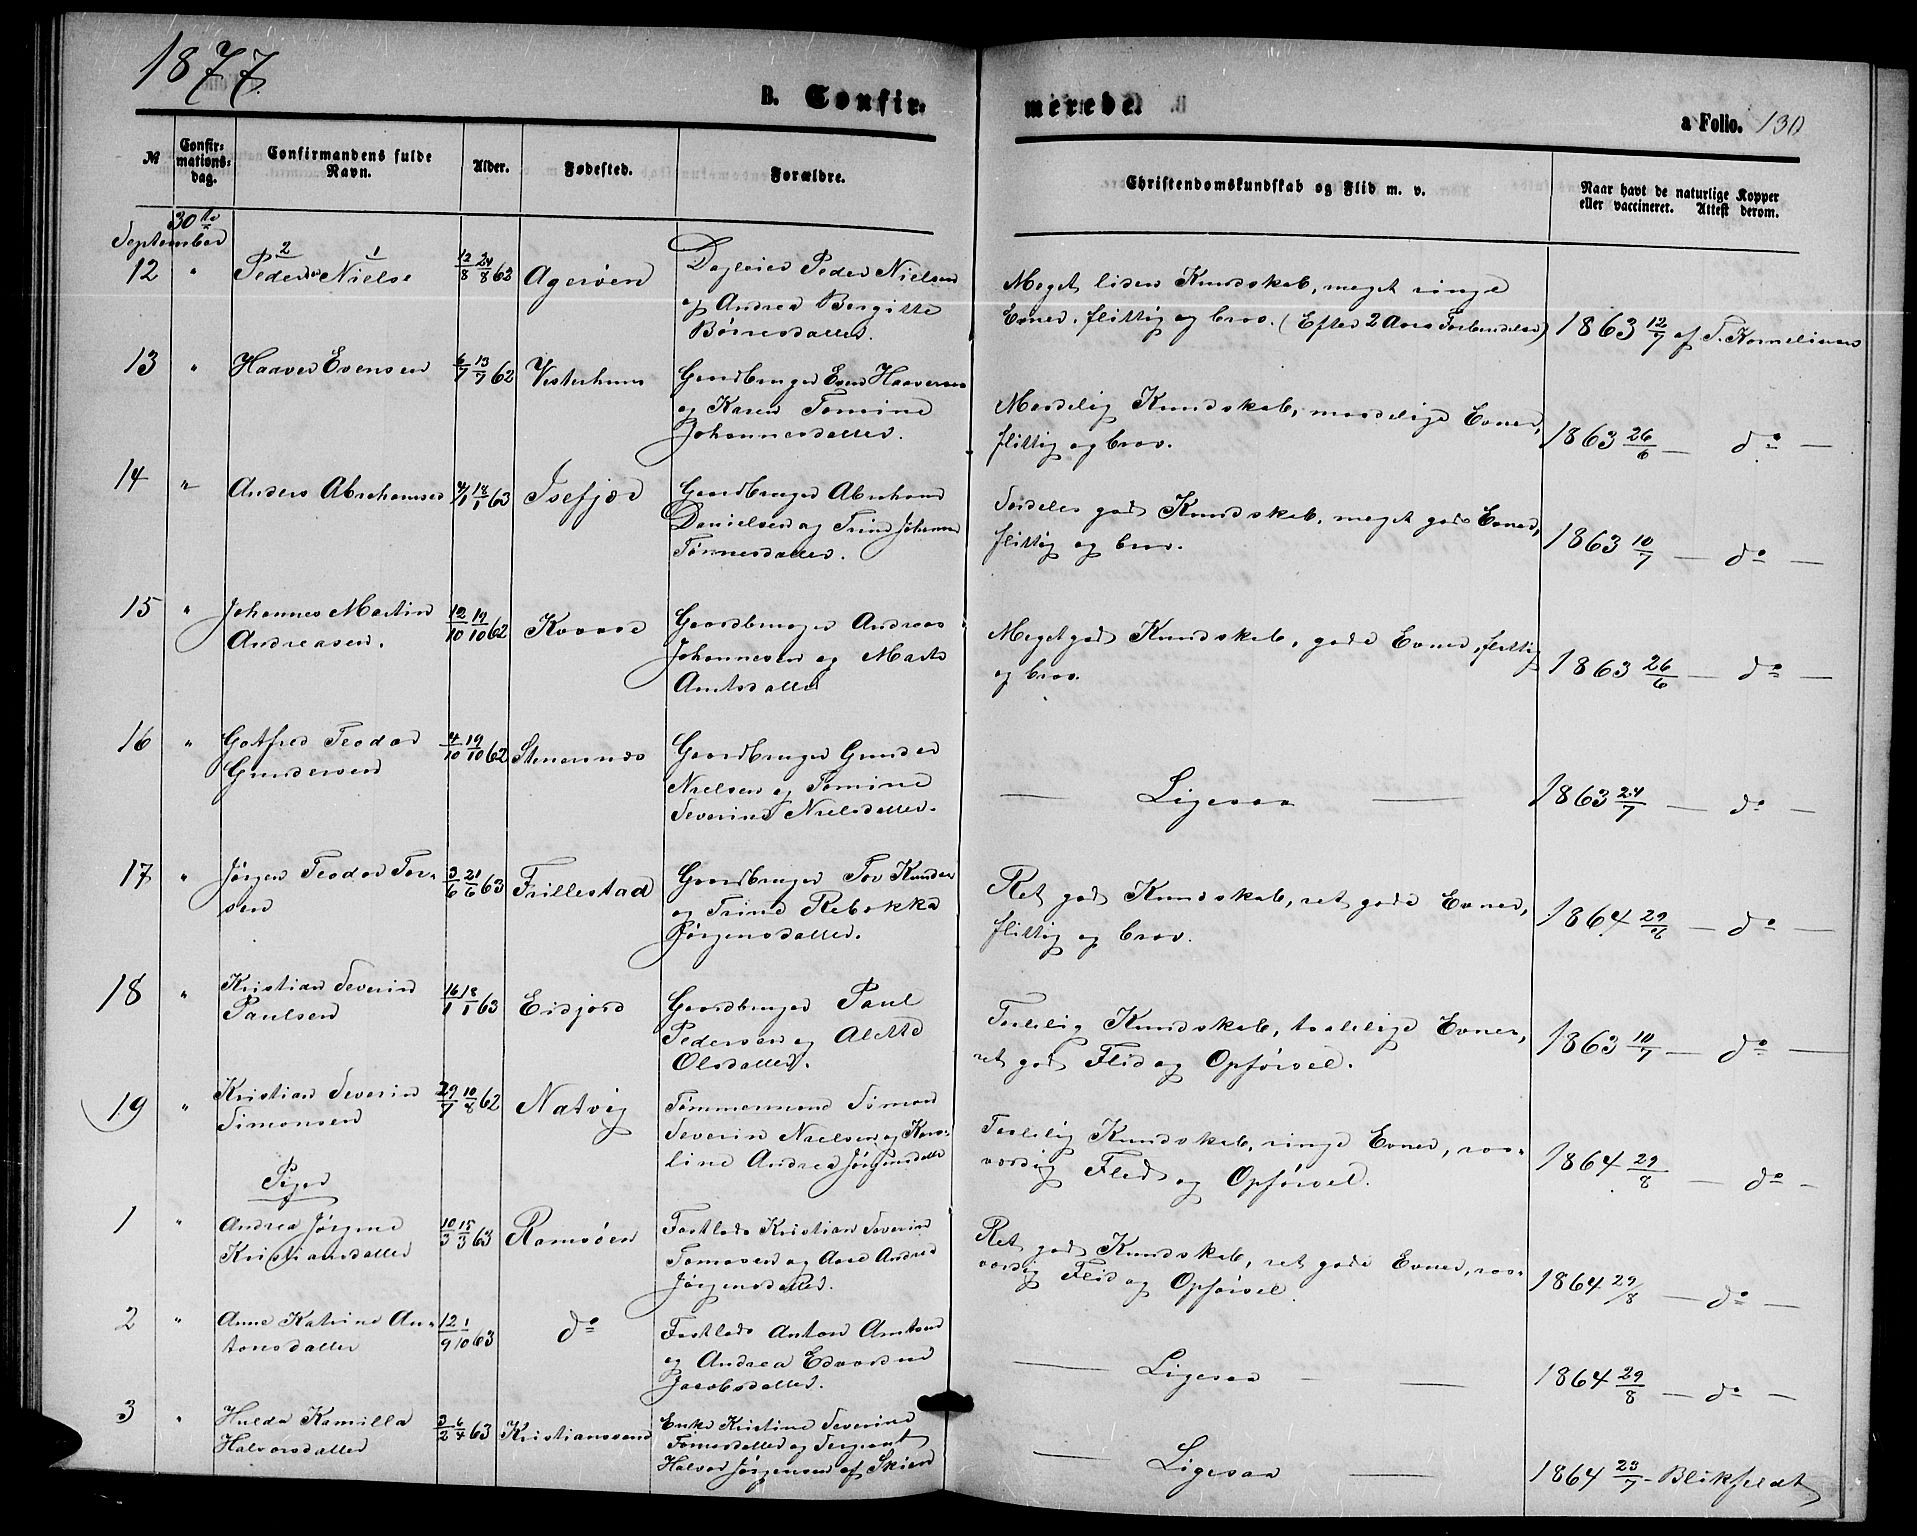 1877.
B. Confir-
merede.
a Folio. 130
№
Confir-
mations-
dag.
Confirmandens fulde
Navn.
Alder.
Fødested.
Forældre.
Christendomskundskab og Flid m. v.
Naar havt de naturlige Kopper
eller vaccineret. Attest derom.
30te
September
2 1
12 " Peder Nielse 12/8 24/8 62 Agerøen
Dagleier Peder Nielsen
og Andrea Bergitte
Børresdatter.
Meget liden Kundskab, meget ringe
Evner, flittig og brav. (Efter 2 Aars Forberedelse)
1863 12/7 af T. Korneliussen
13 " Haaver Evensen 6/7 13/7 62 Vesterhuus
Gaardbruger Even Haaversen
og Karen Tomine
Johannesdatter.
Maadelig Kundskab, maadelige Evner,
flittig og brav.
1863 26/6 — do —
14 " Anders Abrahamsen 4/1 18/1 63 Isefjær
Gaardbruger Abraham
Danielsen og Trine Johanne
Tønnesdatter.
Særdeles god Kundskab, meget gode Evner,
flittig og brav.
1863 10/7 — do —
15 " Johannes Martin
Andreasen. 12/10 19/10 62 Kvaase
Gaardbruger Andreas
Johannesen og Marte
Arntsdatter
Meget god Kundskab, gode Evner, flittig
og brav.
1863 26/6 — do —
16 " Gotfred Teodor
Gundersen 4/10 19/10 62 Stenersnes
Gaardbruger Gunder
Nielsen og Tomine
Severine Nielsdatter.
— Ligesaa —
1863 24/7 — do —
17 " Jørgen Teodor Tor-
sen 3/6 21/6 63 Frillestad
Gaardbruger Tor Knudsen
og Trine Rebekka
Jørgensdatter.
Ret god Kundskab, ret gode Evner,
flittig og brav.
1864 29/8 — do —
18 " Kristian Severin
Paulsen 16/1 18/1 63 Eidjord
Gaardbruger Paul
Pedersen og Alette
Olsdatter.
Taalelig Kundskab, taalelige Evner,
ret god Flid og Opførsel.
1863 10/7 — do —
19 " Kristian Severin
Simonsen 29/7 10/8 62 Natvig
Tømmermand Simon
Severin Nielsen og Karo-
line Andrea Jørgensdatter
Taalelig Kundskab, ringe Evner, ros-
værdig Flid og Opførsel.
1864 29/8 — do —
Piger
1 " Andrea Jørgine
Kristiansdatter 10/3 15/3 63 Ramsøen
Fastlods Kristian Severin
Tomasen og Aase Andrea
Jørgensdatter.
Ret god Kundskab, ret gode Evner, ros-
værdig Flid og Opførsel.
1864 29/8 — do —
2 " Anne Katrine An-
tonsdatter 12/9 1/10 63 do
Fastlods Anton Arntsen
og Andrea Edvardine
Jacobsdatter.
— Ligesaa —
1864 29/8 — do —
3 " Hulda Kamilla
Halvorsdatter 3/2 6/4 63 Kristianssand
Enke Kristine Severine
Tønnesdatter og Sergeant
Halvor Jørgensen af Skien
— Ligesaa —
1864 23/7 - Blikfeldt